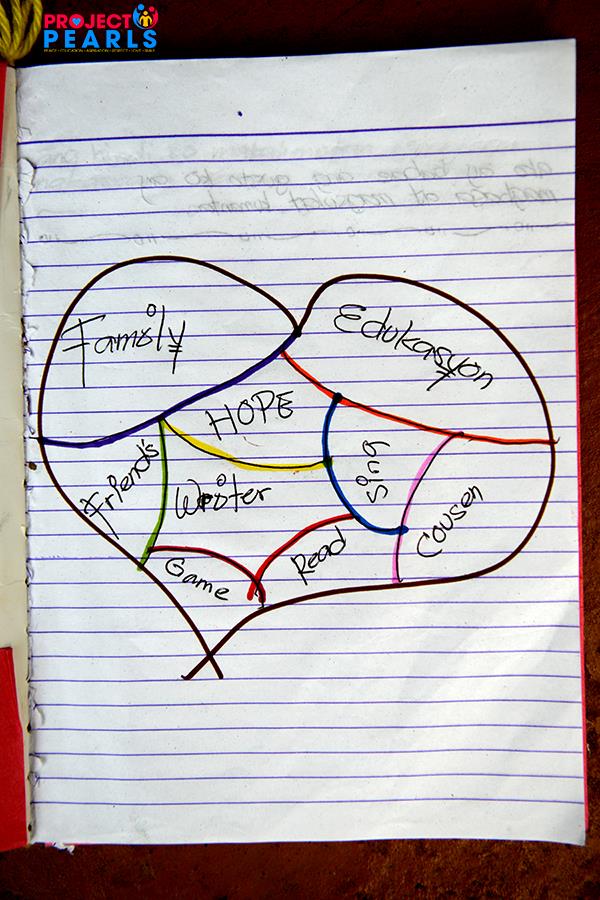 PROJECT
PEARLS
PEACE • EDUCATION • ASPIRATION • RESPECT • LOVE • SMILE
Family
Edukasyon
HOPE
Friend's
Wroiter
Sing
Cousen
Game
Read